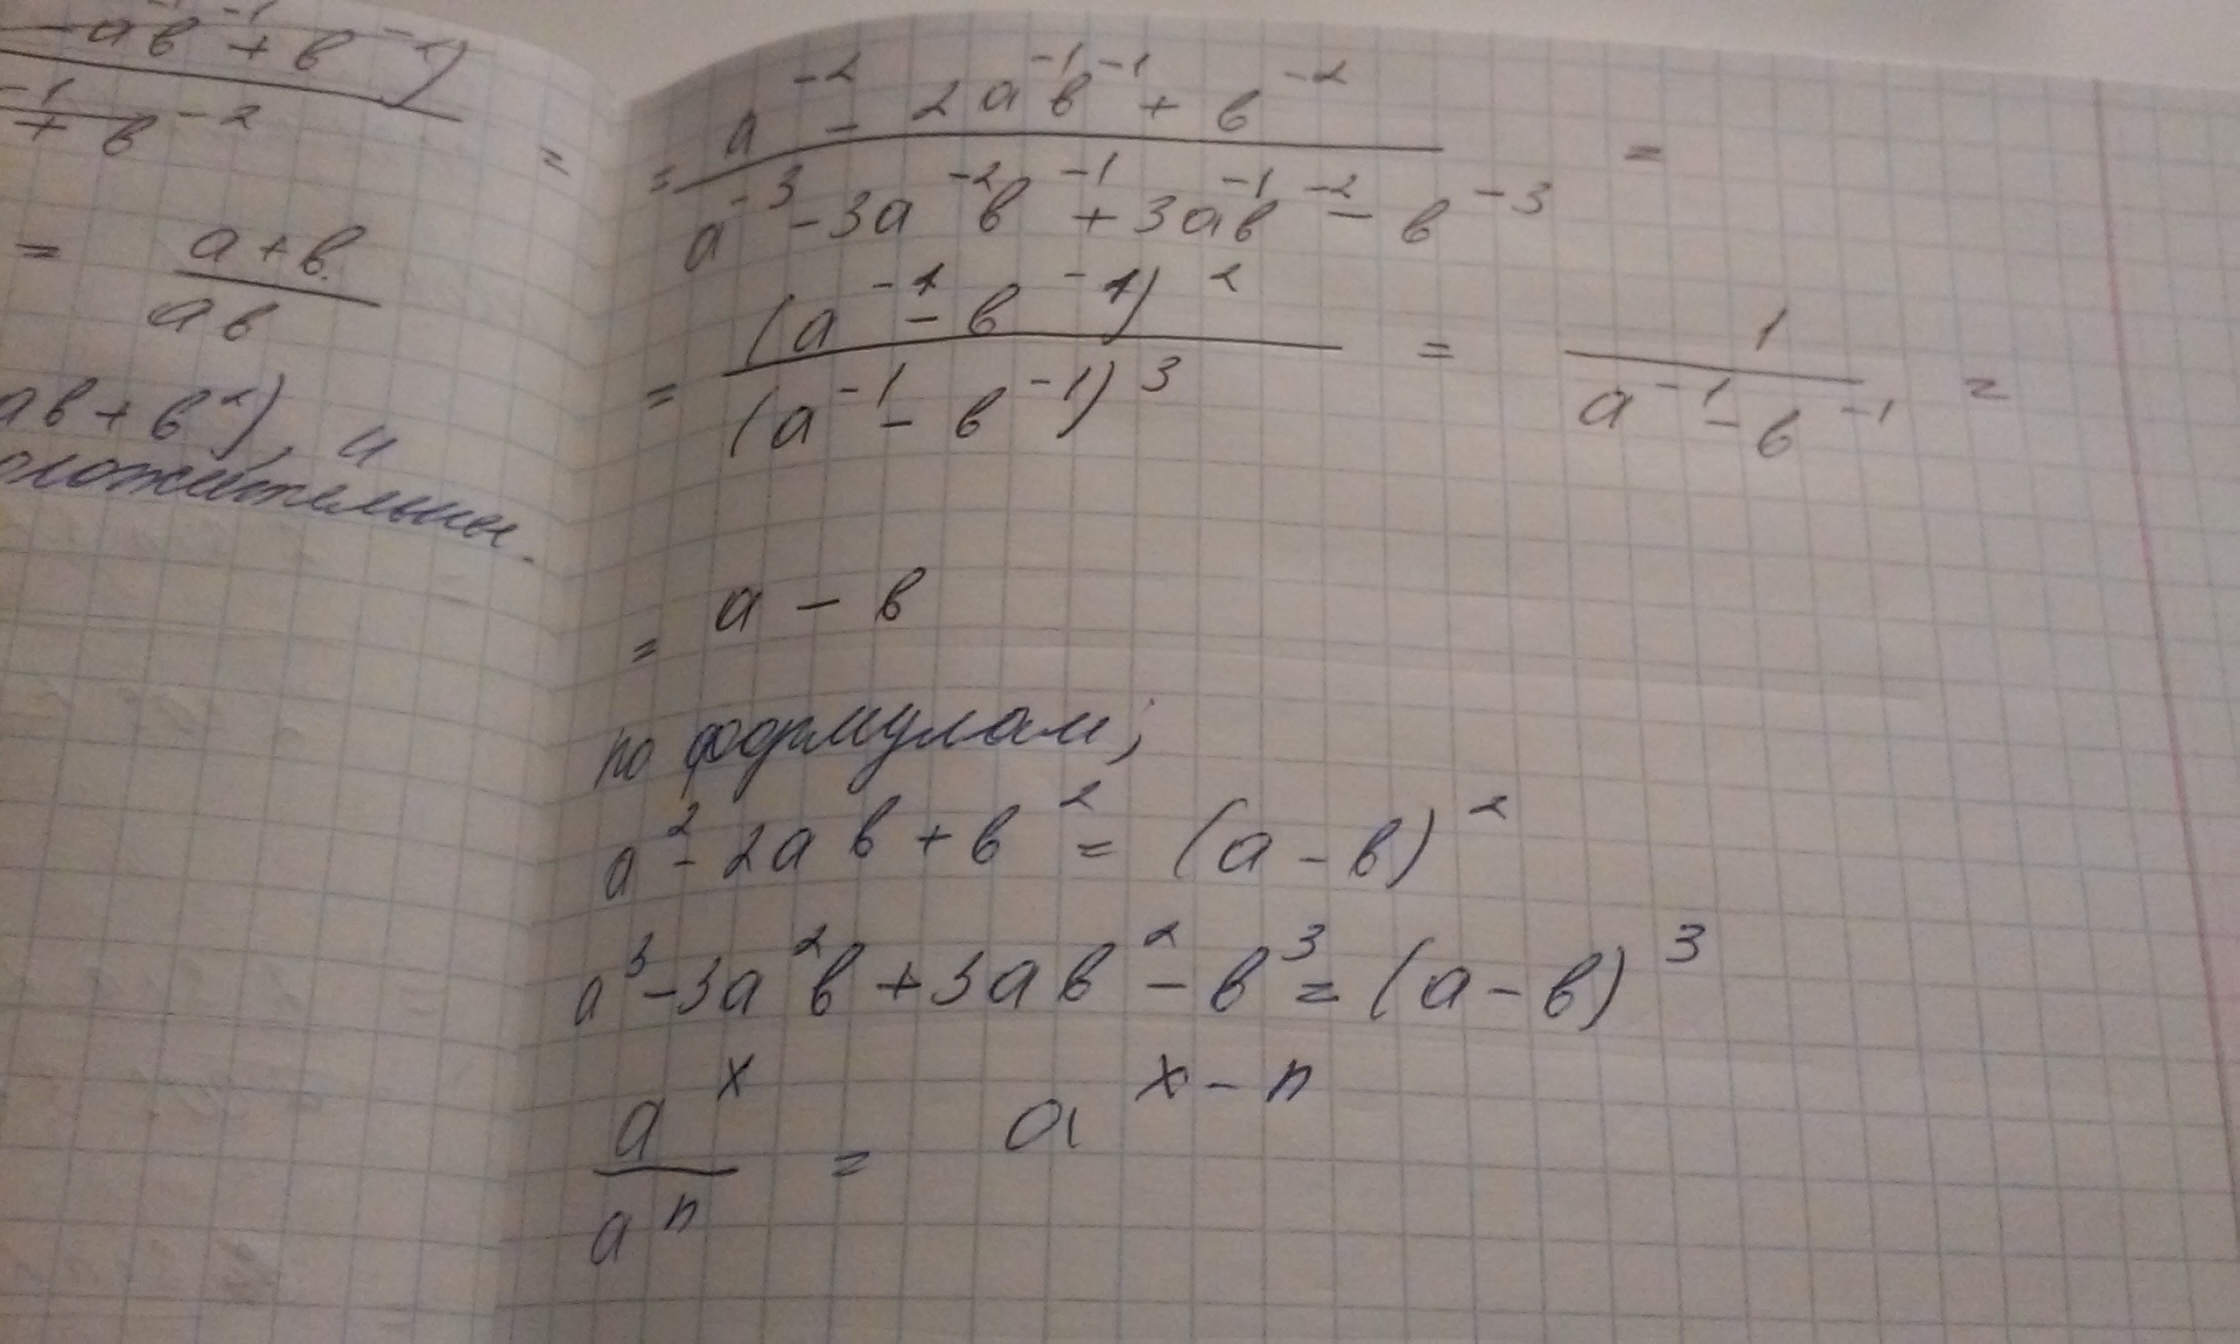 -ab⁻¹ + b⁻²)
⁻¹ + b⁻² =
= a + b / ab
ab + b²), и
оложительны.
= a⁻² - 2a⁻¹b⁻¹ + b⁻² / a⁻³ - 3a⁻²b⁻¹ + 3a⁻¹b⁻² - b⁻³ =
= (a⁻¹ - b⁻¹)² / (a⁻¹ - b⁻¹)³ = 1 / a⁻¹ - b⁻¹ =
= a - b
по формулам;
a² - 2ab + b² = (a - b)²
a³ - 3a²b + 3ab² - b³ = (a - b)³
aˣ / aⁿ = aˣ⁻ⁿ